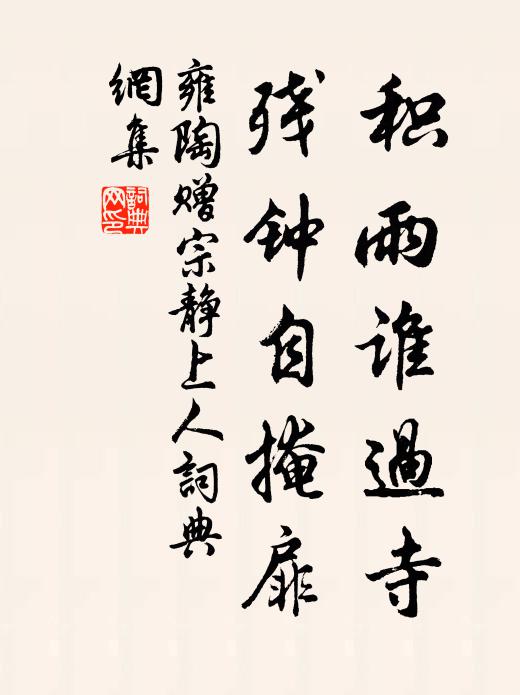 积雨谁過寺
残钟自掩扉
雍陶赠宗静上人詞典
網集
詞典網印